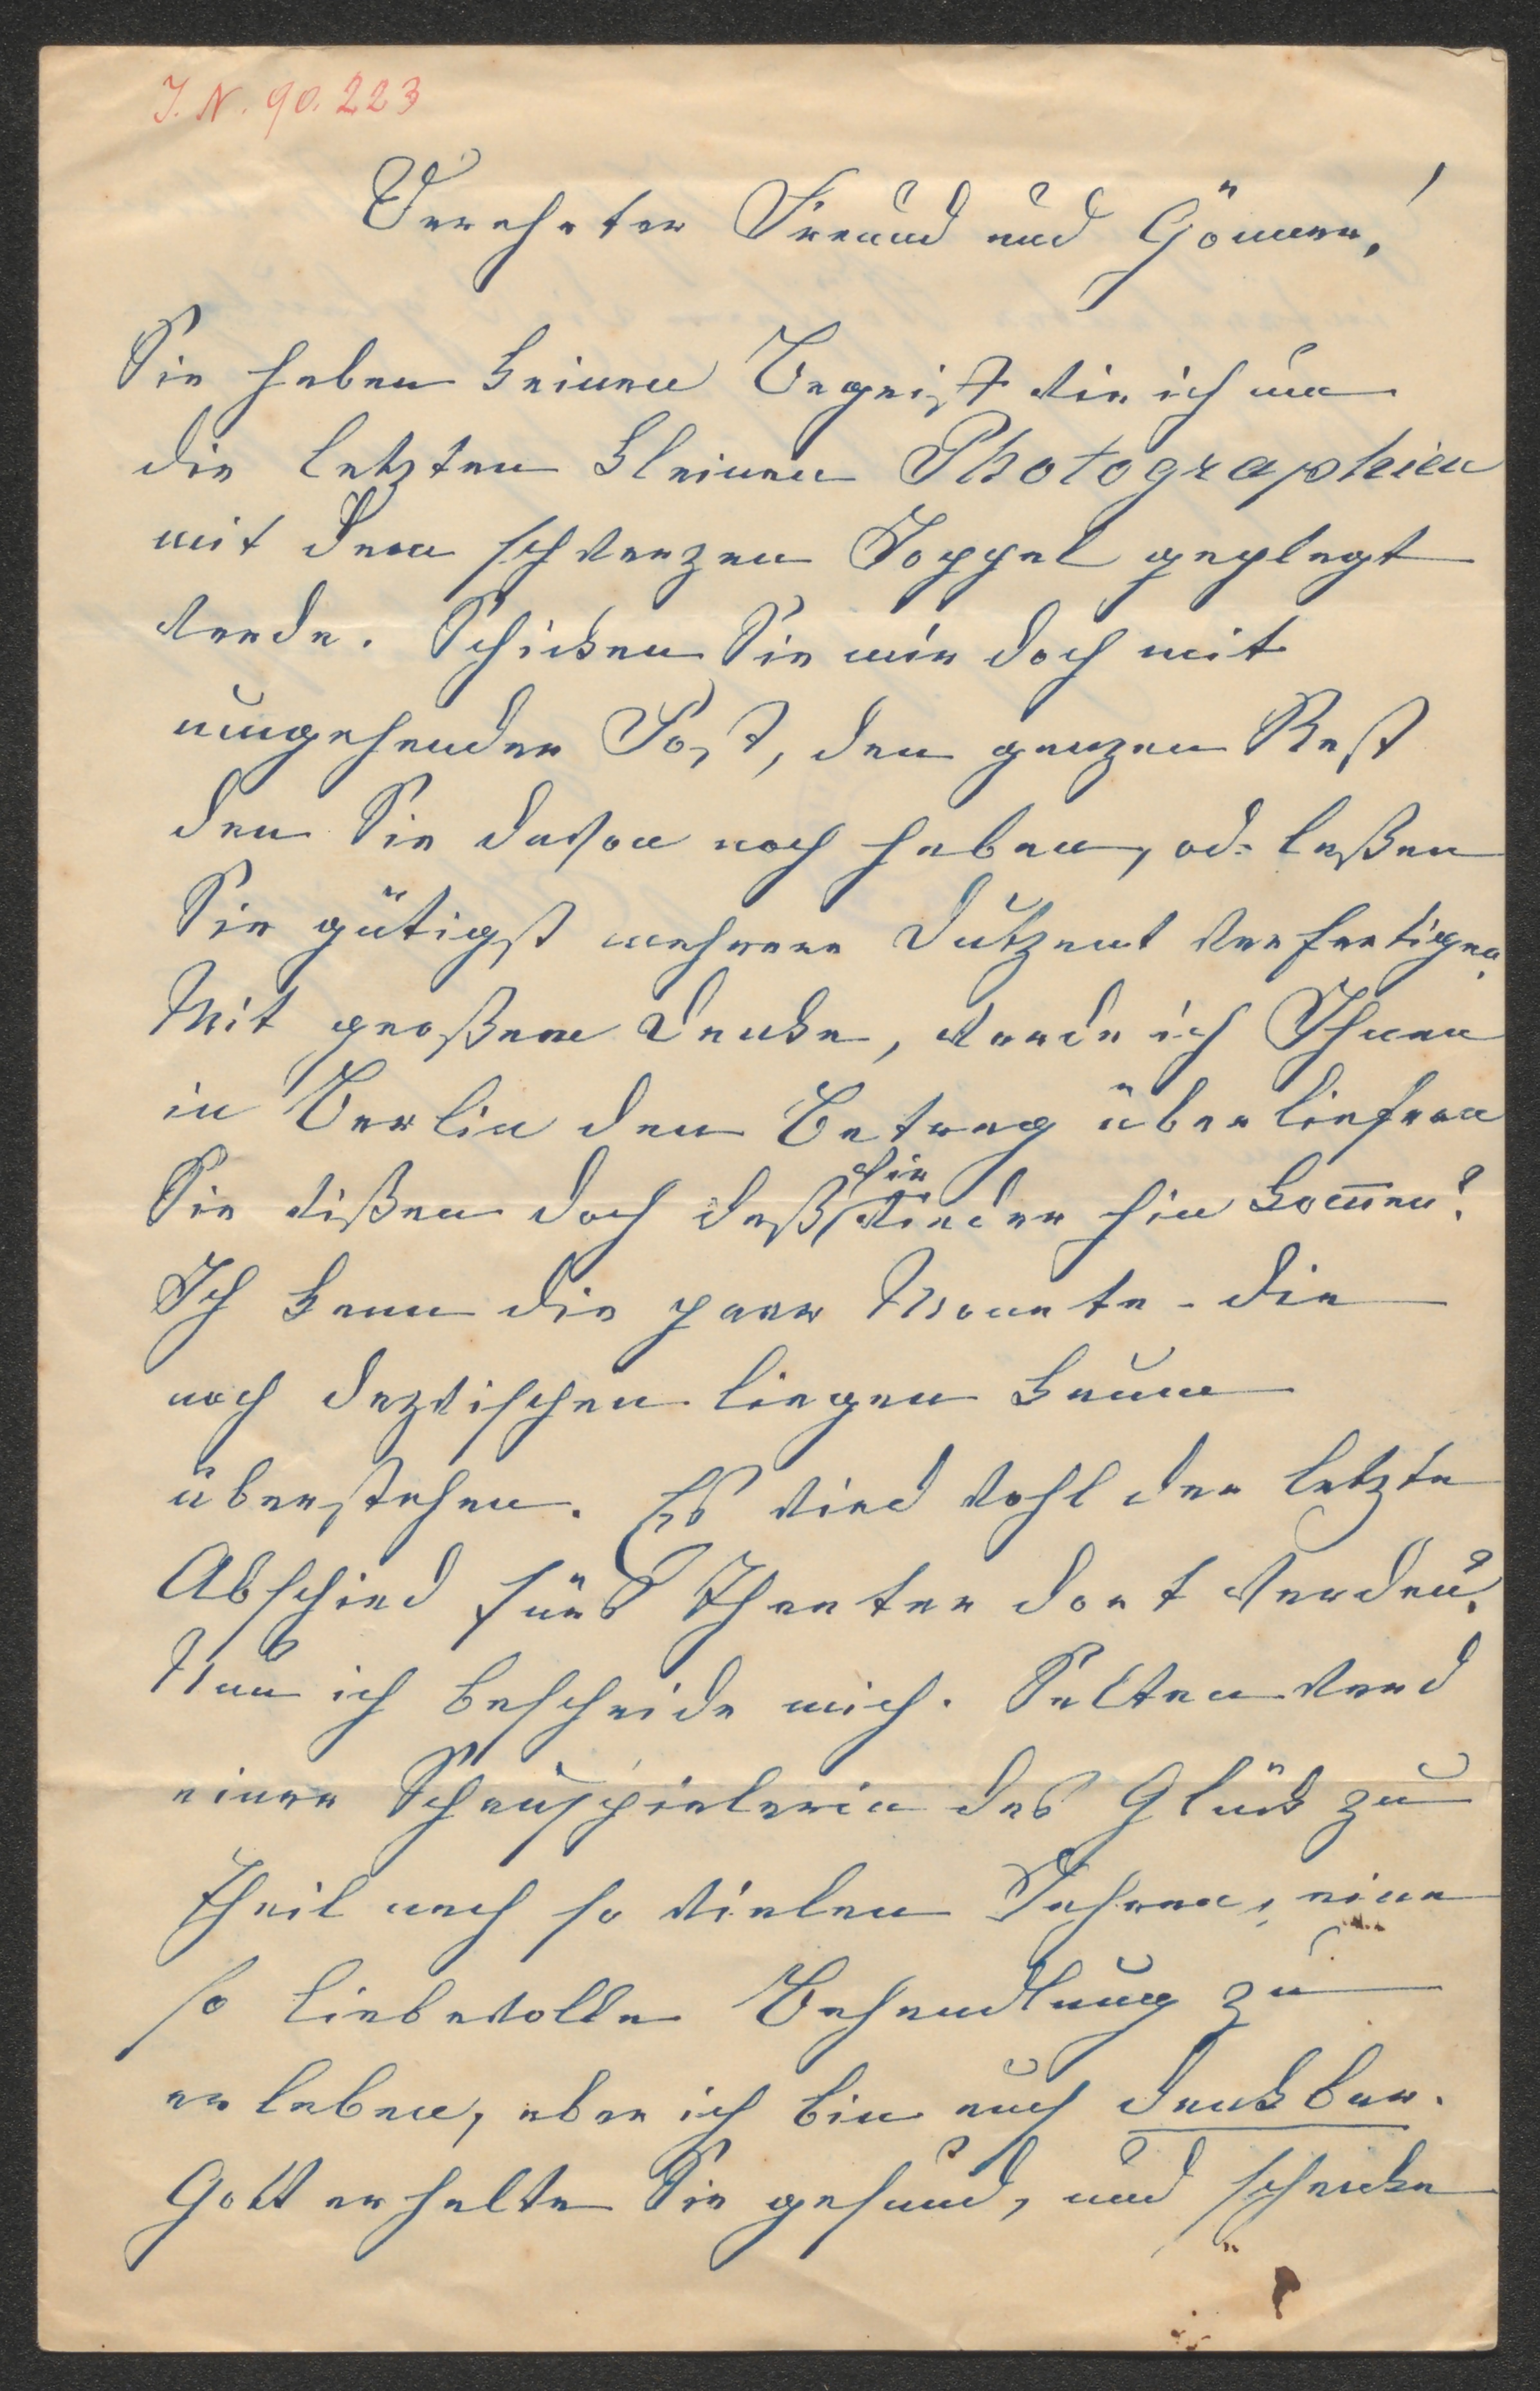 J. N. 90.223
Verehrter Freund und Gönner!
Sie haben keinen Begriff wie ich um
die letzten kleinen Photographien
mit dem schwarzen Joppel geplagt
werde. Schicken Sie mir doch mit
umgehender Post, den ganzen Rest
den Sie davon noch haben, od. laßen
Sie gütigst mehrere Dutzent verfertigen.
Mit großem Danke, werde ich Ihnen
in Berlin den Betrag überliefern
Sie wißen doch daß wir wieder hin kom̅en?
Ich kann die paar Monate - die
noch dazwischen liegen kaum
überstehen. Es wird wohl der letzte
Abschied fürs Theater dort werden?
Nun ich bescheide mich. Selten ward
einer Schauspielerin das Glück zu
theil nach so vielen Jahren, eine
so liebevolle Behandlung zu
erleben, aber ich bin auch dankbar.
Gott erhalte Sie gesund, und schenke